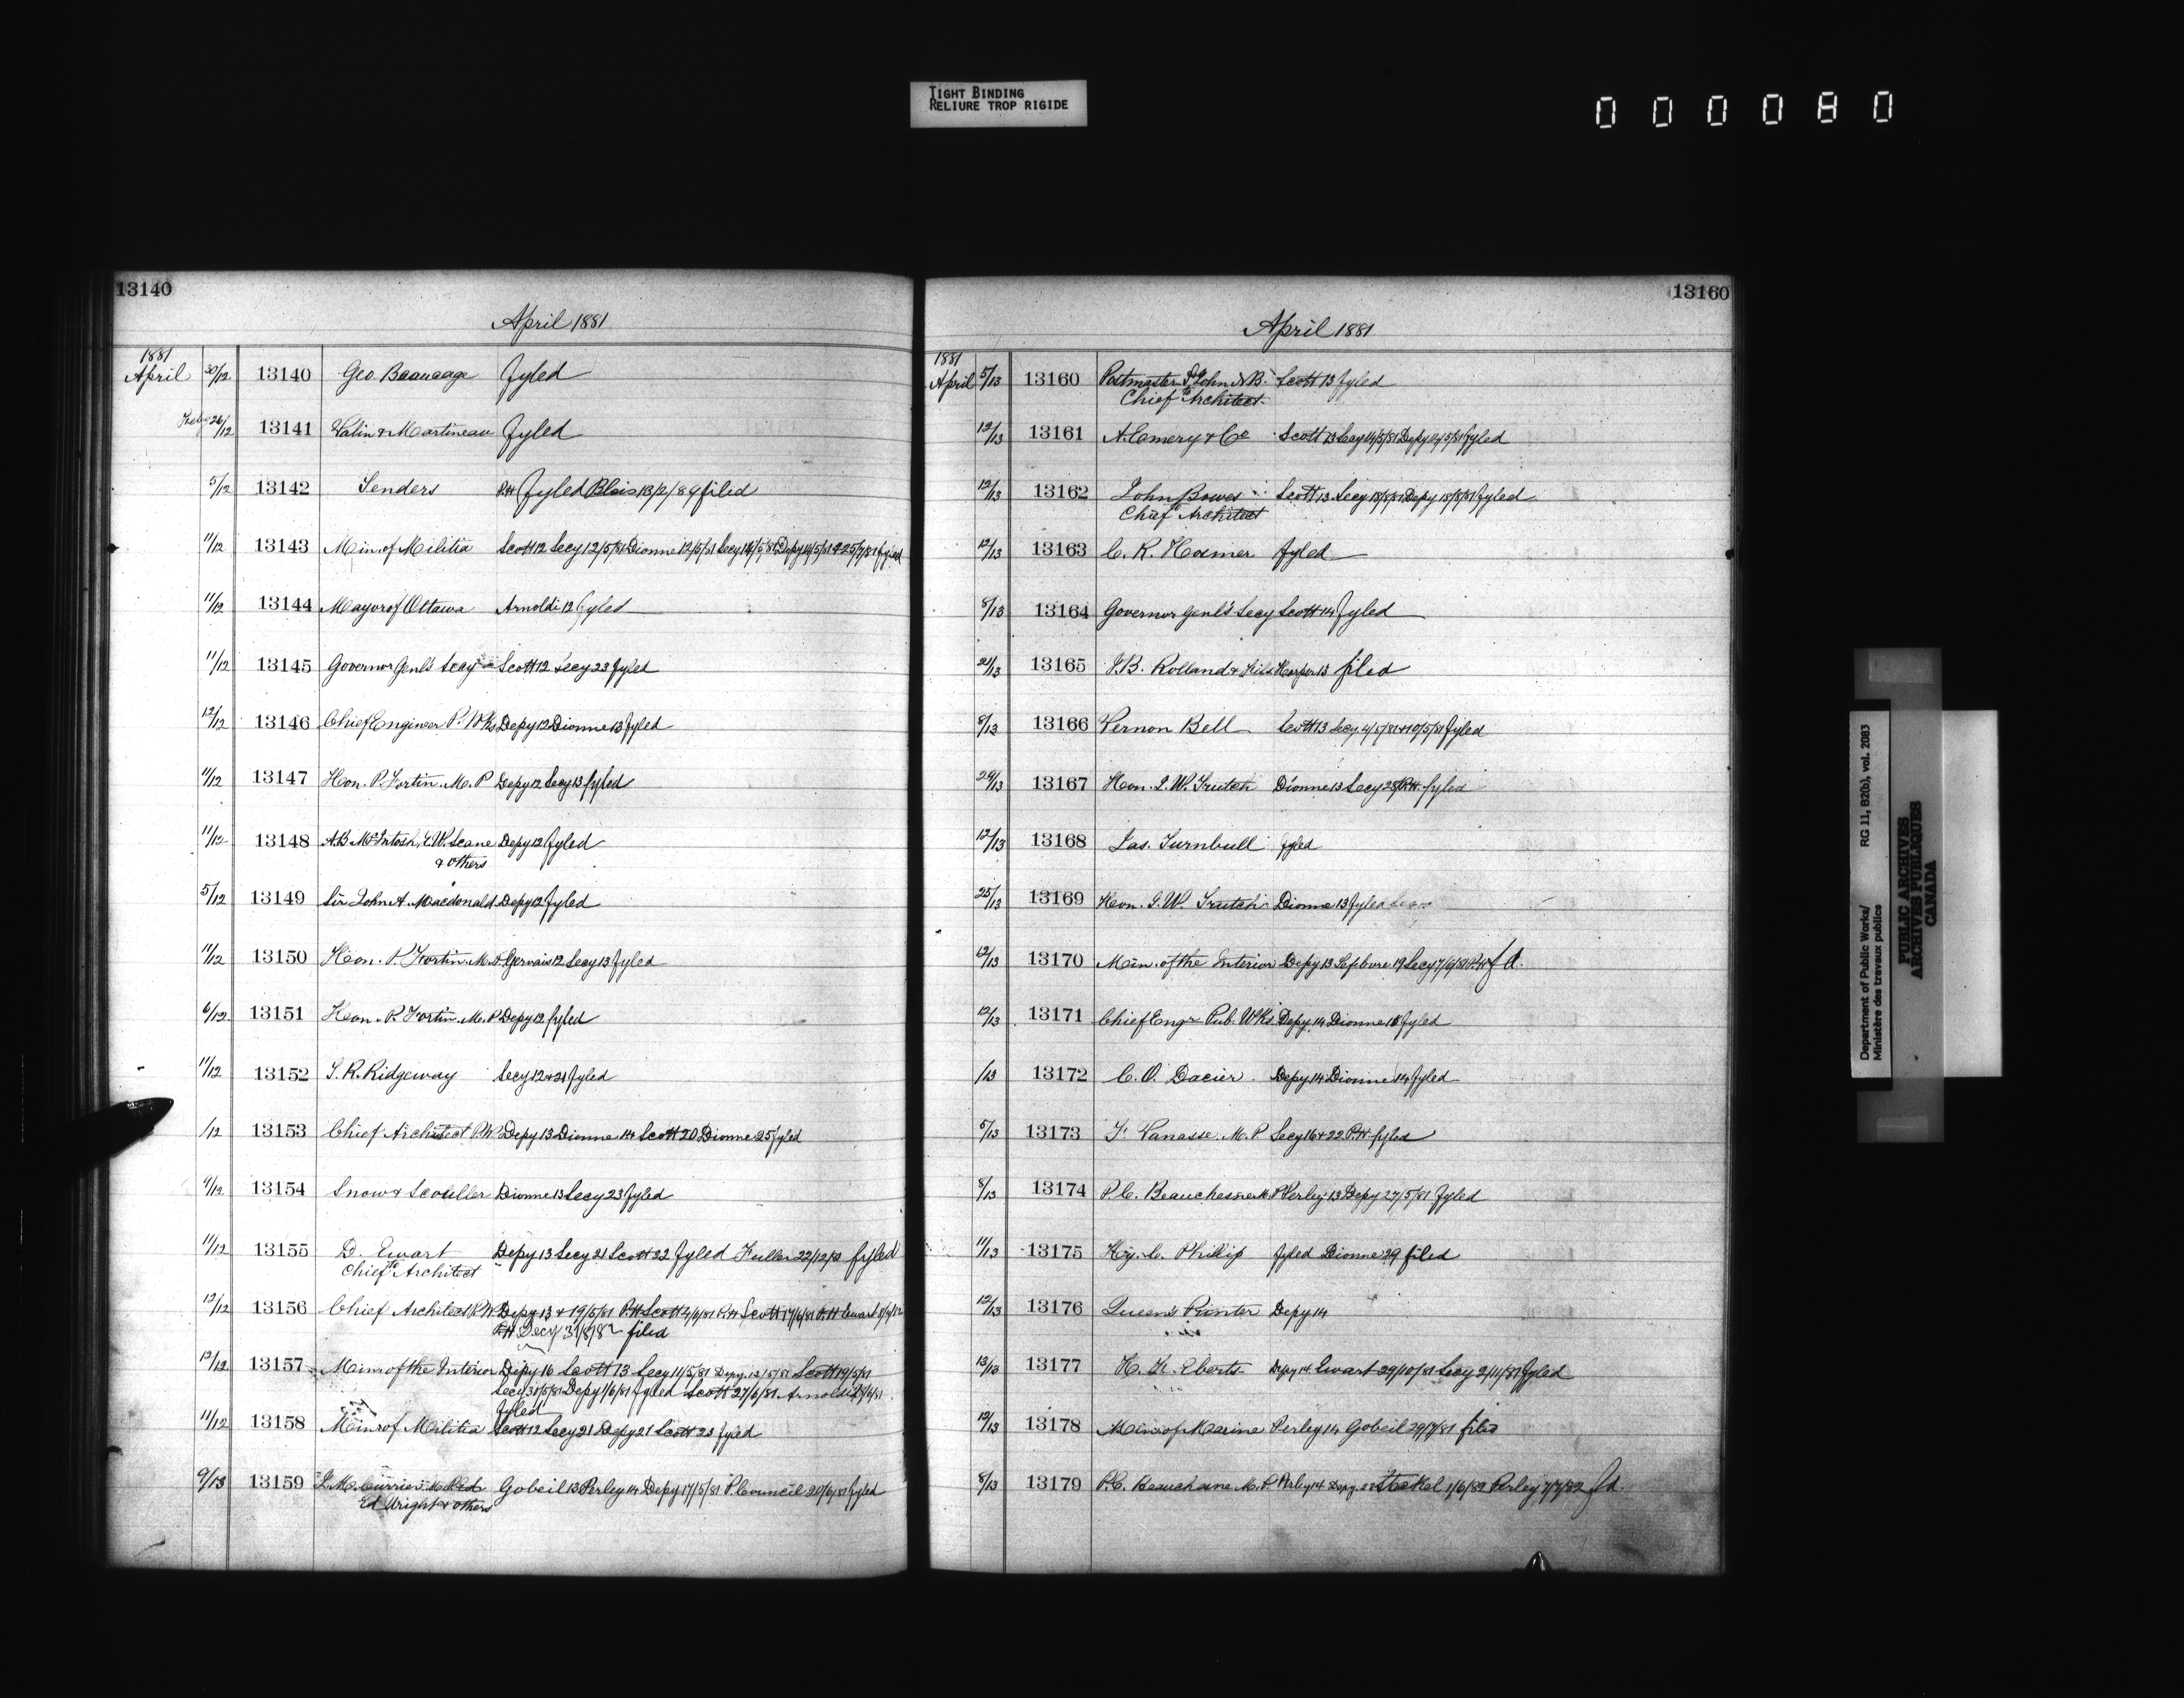 TIGHT BINDING
RELIURE TROP RIGIDE
000080
13140
April 1881
1881
April 30/12 13140 Geo. Beaucage Fyled
Feby 26/12 13141 Valin & Martineau Fyled
5/12 13142 Tenders P.H Fyled Blais 13/2/89 filed
11/12 13143 Min. of Militia Scott 12 Secy 12/5/81 Dionne 12/5/81 Secy 14/5/81 Depy 14/5/81 & 25/7/81 fyled
11/12 13144 Mayor of Ottawa Arnoldi 12 Fyled
11/12 13145 Governor Genl's Secy Scott 12 Secy 23 Fyled
12/12 13146 Chief Engineer P. Wks Depy 12 Dionne 13 Fyled
11/12 13147 Hon. P. Fortin. M. P Depy 12 Secy 13 fyled
11/12 13148 A.B. McIntosh, E.W. Scane Depy 12 Fyled
& others
5/12 13149 Sir John A. Macdonald Depy 12 fyled
11/12 13150 Hon. P. Fortin M.P Gervais 12 Secy 13 Fyled
6/12 13151 Hon. P. Fortin. M. P Depy 12 fyled
11/12 13152 S. R. Ridgeway Secy 12 & 21 Fyled
/12 13153 Chief Architect P.W. Depy 13 Dionne 14 Scott 20 Dionne 25 fyled
9/12 13154 Snow & Scouller Dionne 13 Secy 23 Fyled
11/12 13155 D. Ewart Depy 13 Secy 21 Scott 22 Fyled Fuller 22/12/ fyled
Chief to Architect
12/12 13156 Chief Architect P.W. Depy 13 & 19/5/81 P.H Scott 2/6/81 P.H Scott 17/6/81 P.H Ewart
P.H Decy 31/8/82 filed
12/12 13157 Minr of the Interior Depy 16 Scott 13 Secy 11/5/81 Depy. 12/5/81 Scott 19/5/81
Secy 31/5/81 Depy 1/6/81 Fyled Scott 27/6/81. Arnoldi
fyled
11/12 13158 Minr of Militia Scott 12 Secy 21 Depy 21 Scott 23 fyled
9/13 13159 J. M. Currier M.P. Ed Gobeil 13 Perley 14 Depy 17/5/81 P. Council 20/6/81 fyled
Ed Wright & others
13160
April 1881
1881
April 5/13 13160 Postmaster St John N.B. Scott 13 Fyled
Chief to Architect.
12/13 13161 A. Emery & Co Scott 13 Secy 14/5/81 Depy 14/5/81 Fyled
12/13 13162 John Bowes Scott 13 Secy 18/5/81 Depy 18/5/81 Fyled
Chief to Architect
12/13 13163 C. R. Hosmer fyled
8/13 13164 Governor Genl's Secy Scott 14 Fyled
21/13 13165 J.B. Rolland & Fils Harper 13 filed
8/13 13166 Vernon Bell Scott 13 Secy. 4/5/81 & 10/5/81 Fyled
24/13 13167 Hon. J. W. Trutch Dionne 13 Secy 25 P.H. fyled
12/13 13168 Jas. Turnbull fyled
25/13 13169 Hon. J. W. Trutch Dionne 13 Fyled
12/13 13170 Min. of the Interior Depy 13 Lefebvre 19 Secy 7/6/81 P.H fd.
12/13 13171 Chief Engr Pub. Wks Depy 14 Dionne 18 Fyled
/13 13172 C. O. Dacier. Depy 14 Dionne 14 Fyled
5/13 13173 F. Vanasse. M. P Secy 16 & 22 P.H. fyled
8/13 13174 P. C. Beauchesne M. P Perley 13 Depy 27/5/81 Fyled
11/13 13175 Hy. C. Phillip fyled Dionne 29 filed
12/13 13176 Queen's Printer Depy 14
13/13 13177 H. F. Eberts Depy 14 Ewart 29/10/81 Secy 2/11/81 Fyled
12/13 13178 Minr of Marine Perley 14 Gobeil 29/7/81 filed
8/13 13179 P.C. Beauchane M. P. Perley 14 Depy. 23 Steckel 1/6/82 Perley 7/7/82 fd.
Department of Public Works/ RG 11, B2(b), vol. 2083
Ministère des travaux publics
PUBLIC ARCHIVES
ARCHIVES PUBLIQUES
CANADA